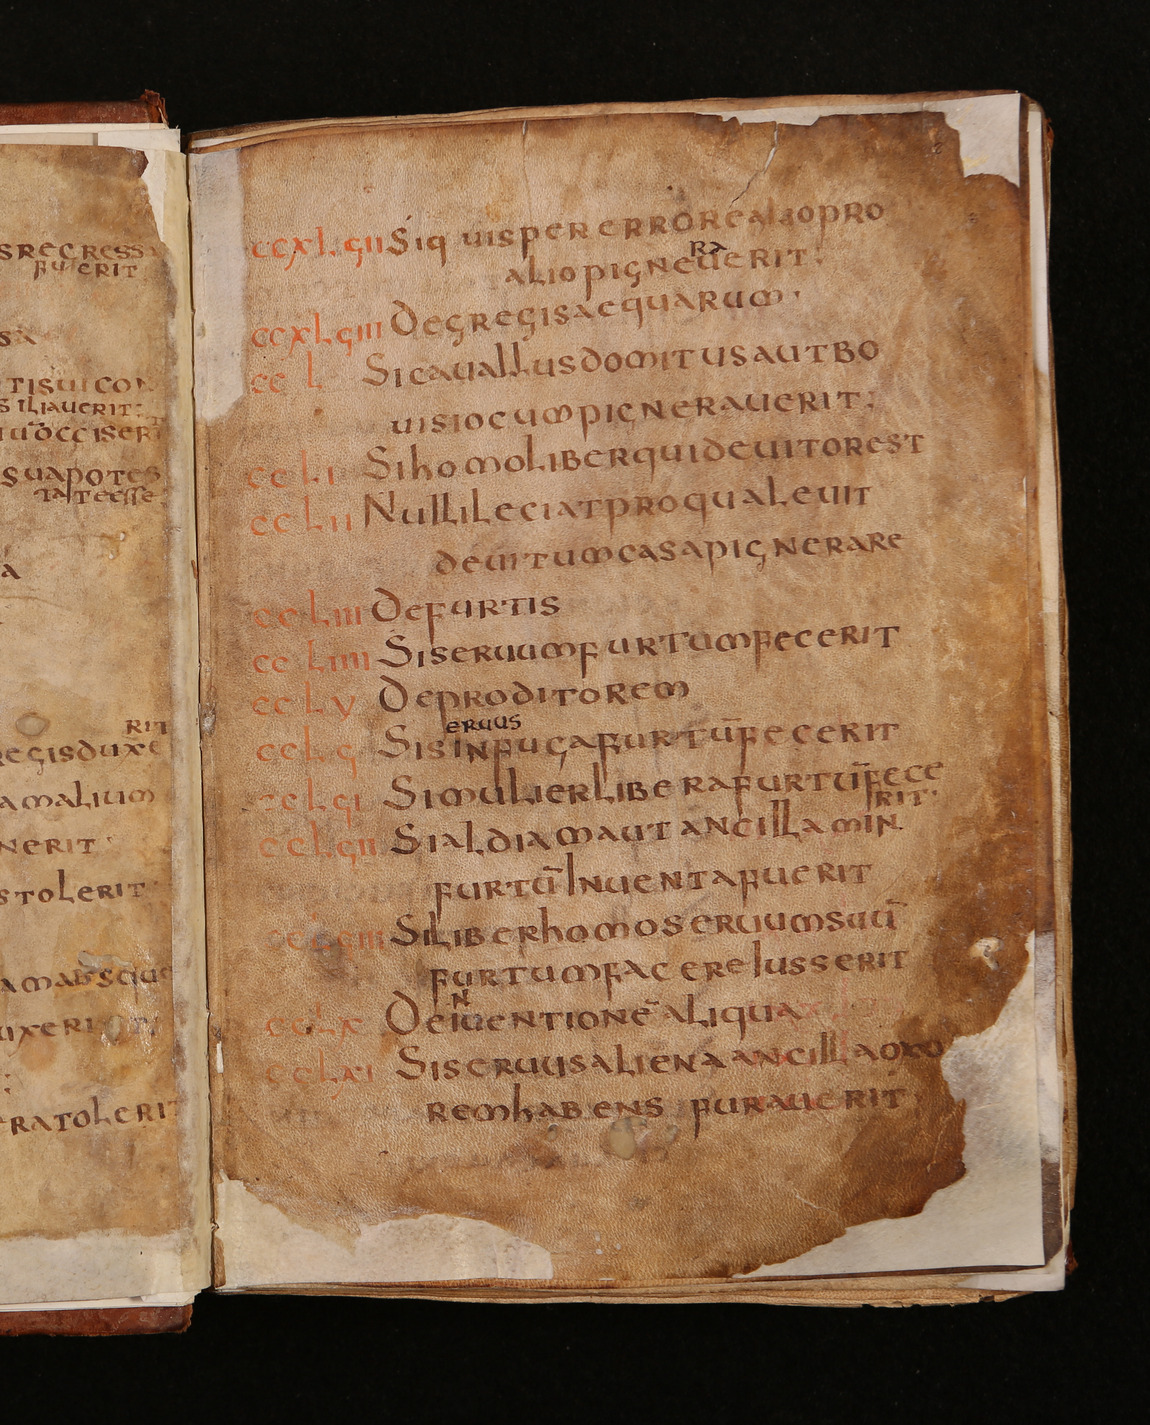 SRECRESS
FUERIT
SA
RTISUICON
SILIAUERIT:
IŪOCCISERI
SUAPOTES
TATEESSE
A
RIT
REGISDUXE
AMALIUM
NERIT
STOLERIT
AMABSQUE
UIXERI
ERATOLERIT
CCXLϛII Siquispererrorealiopro
aliopigneuerit:
RA
CCXLϛIII Degregisaequarum·
CCL Sicauallusdomitusautbo
uisiocumpignerauerit:
CCLI Sihomoliberquideuitorest
CCLII Nullileciatproqualeuit
deuitumcasapignerare
CCLIII Defurtis
CCLIIII Siseruumfurtumfecerit
CCLV Deproditorem
eruus
CCLϛ Sisinfugafurtūfecerit
CCLϛI Simulierliberafurtūfece
rit·
CCLϛII Sialdiamautancillamin
furtū Inuentafuerit
CCLϛIII Siliberhomoseruumsuū
furtumfacereIusserit
N
CCLX Deiuentionēaliqua
CCLXI Siseruusalienaancillaoxo
remhabens furauerit